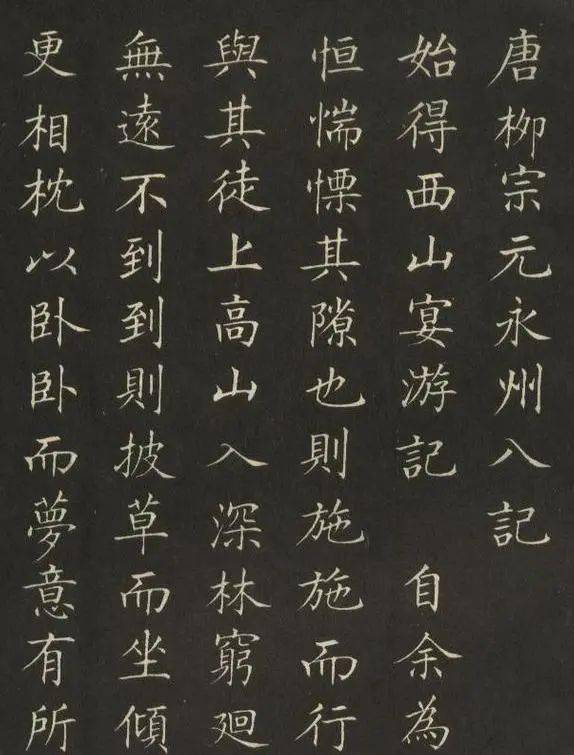 唐柳宗元永州八記
始得西山宴游記 自余為
恒惴慄其隙也則施施而行
與其徒上高山入深林窮迴
無遠不到到則披草而坐傾
更相枕以卧卧而夢意有所